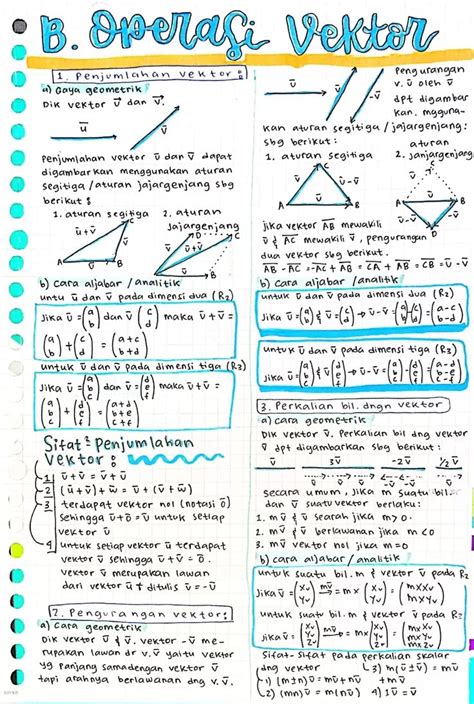 B. Operasi Vektor
1. Penjumlahan vektor:
a) Gaya geometrik
Dik vektor u⃗ dan v⃗.
ū
v̄
Penjumlahan vektor ū dan v̄ dapat
digambarkan menggunakan aturan
segitiga / aturan jajargenjang sbg
berikut :
1. aturan segitiga 2. aturan
jajargenjang
ū+v̄
v̄
ū
A B C
ū+v̄
A B C D
b) Cara aljabar / analitik
untu ū dan v̄ pada dimensi dua (R₂)
Jika ū = (a b) dan v̄ (c d) maka ū + v̄ =
(a b) + (c d) = (a+c b+d)
untuk ū dan v̄ pada dimensi tiga (R₃)
Jika ū = (a b c) dan v̄ = (d e f) maka ū + v̄ =
(a b c) + (d e f) = (a+d b+e c+f)
Sifat² Penjumlahan
Vektor :
1 ū + v̄ = v̄ + ū
2 (ū + v̄) + w̄ = ū + (v̄ + w̄)
3 terdapat vektor nol (notasi ō)
sehingga ū + ō = ū untuk setiap
vektor ū
4 untuk setiap vektor ū terdapat
vektor v̄ sehingga ū + v̄ = ō.
vektor v̄ merupakan lawan
dari vektor ū & ditulis v̄ = -ū
2. Pengurangan vektor:
a) Cara geometrik
Dik vektor ū & v̄. vektor -v̄ me-
rupakan lawan dr v̄. v̄ yaitu vektor
yg panjang sama dengan vektor v̄
tapi arahnya berlawanan dng v. v̄.
ū
v̄
-v̄
Pengurangan
v. ū oleh v̄
dpt digambar
kan. mgguna-
kan aturan segitiga / jajargenjang:
sbg berikut : aturan
1. aturan segitiga 2. jajargenjang
A B C
v̄ ū-v̄
ū
A B C D
jika vektor AB mewakili
ū & AC mewakili v̄, pengurangan
dua vektor sbg berikut.
AB - AC = -AC + AB = CA + AB = CB = ū - v̄
b) Cara aljabar / analitik
untuk ū dan v̄ pada dimensi dua (R₂)
Jika ū = (a b) & v̄ = (c d) → ū - v̄ = (a b) - (c d) = (a-c b-d)
untuk ū dan v̄ pada dimensi tiga (R₃)
Jika ū = (a b c) & v̄ = (d e f) → ū - v̄ = (a b c) - (d e f) = (a-d b-e c-f)
3. Perkalian bil. dngn vektor
a) cara geometrik
Dik vektor v̄. Perkalian bil dng vektor
v̄ dpt digambarkan sbg berikut :
v̄ 3v̄ -2v̄ ½v̄
v̄ v̄ v̄ -v̄ -v̄
secara umum, jika m suatu bil.
dan v̄ suatu vektor berlaku:
1. mv̄ & v̄ searah jika m > 0.
2. mv̄ & v̄ berlawanan jika m < 0
3. mv̄ vektor nol jika m = 0
b) cara aljabar / analitik
untuk suatu bil. m & vektor v̄ pada R₂
Jika v̄ = (xv yv) mv̄→ = m (xv yv) = (mxv myv)
untuk suatu bil. m & vektor v̄ pada R₃
Jika v̄ = (xv yv zv) mv̄→ = m (xv yv zv) = (mxv myv mzv)
Sifat-sifat pada perkalian skalar
dng vektor
1) (m±n)v̄ = mv̄ + nv̄
2) (mn)v̄ = m(nv̄)
3) m(ū ± v̄) = mū
± mv̄
4) 1v̄ = v̄